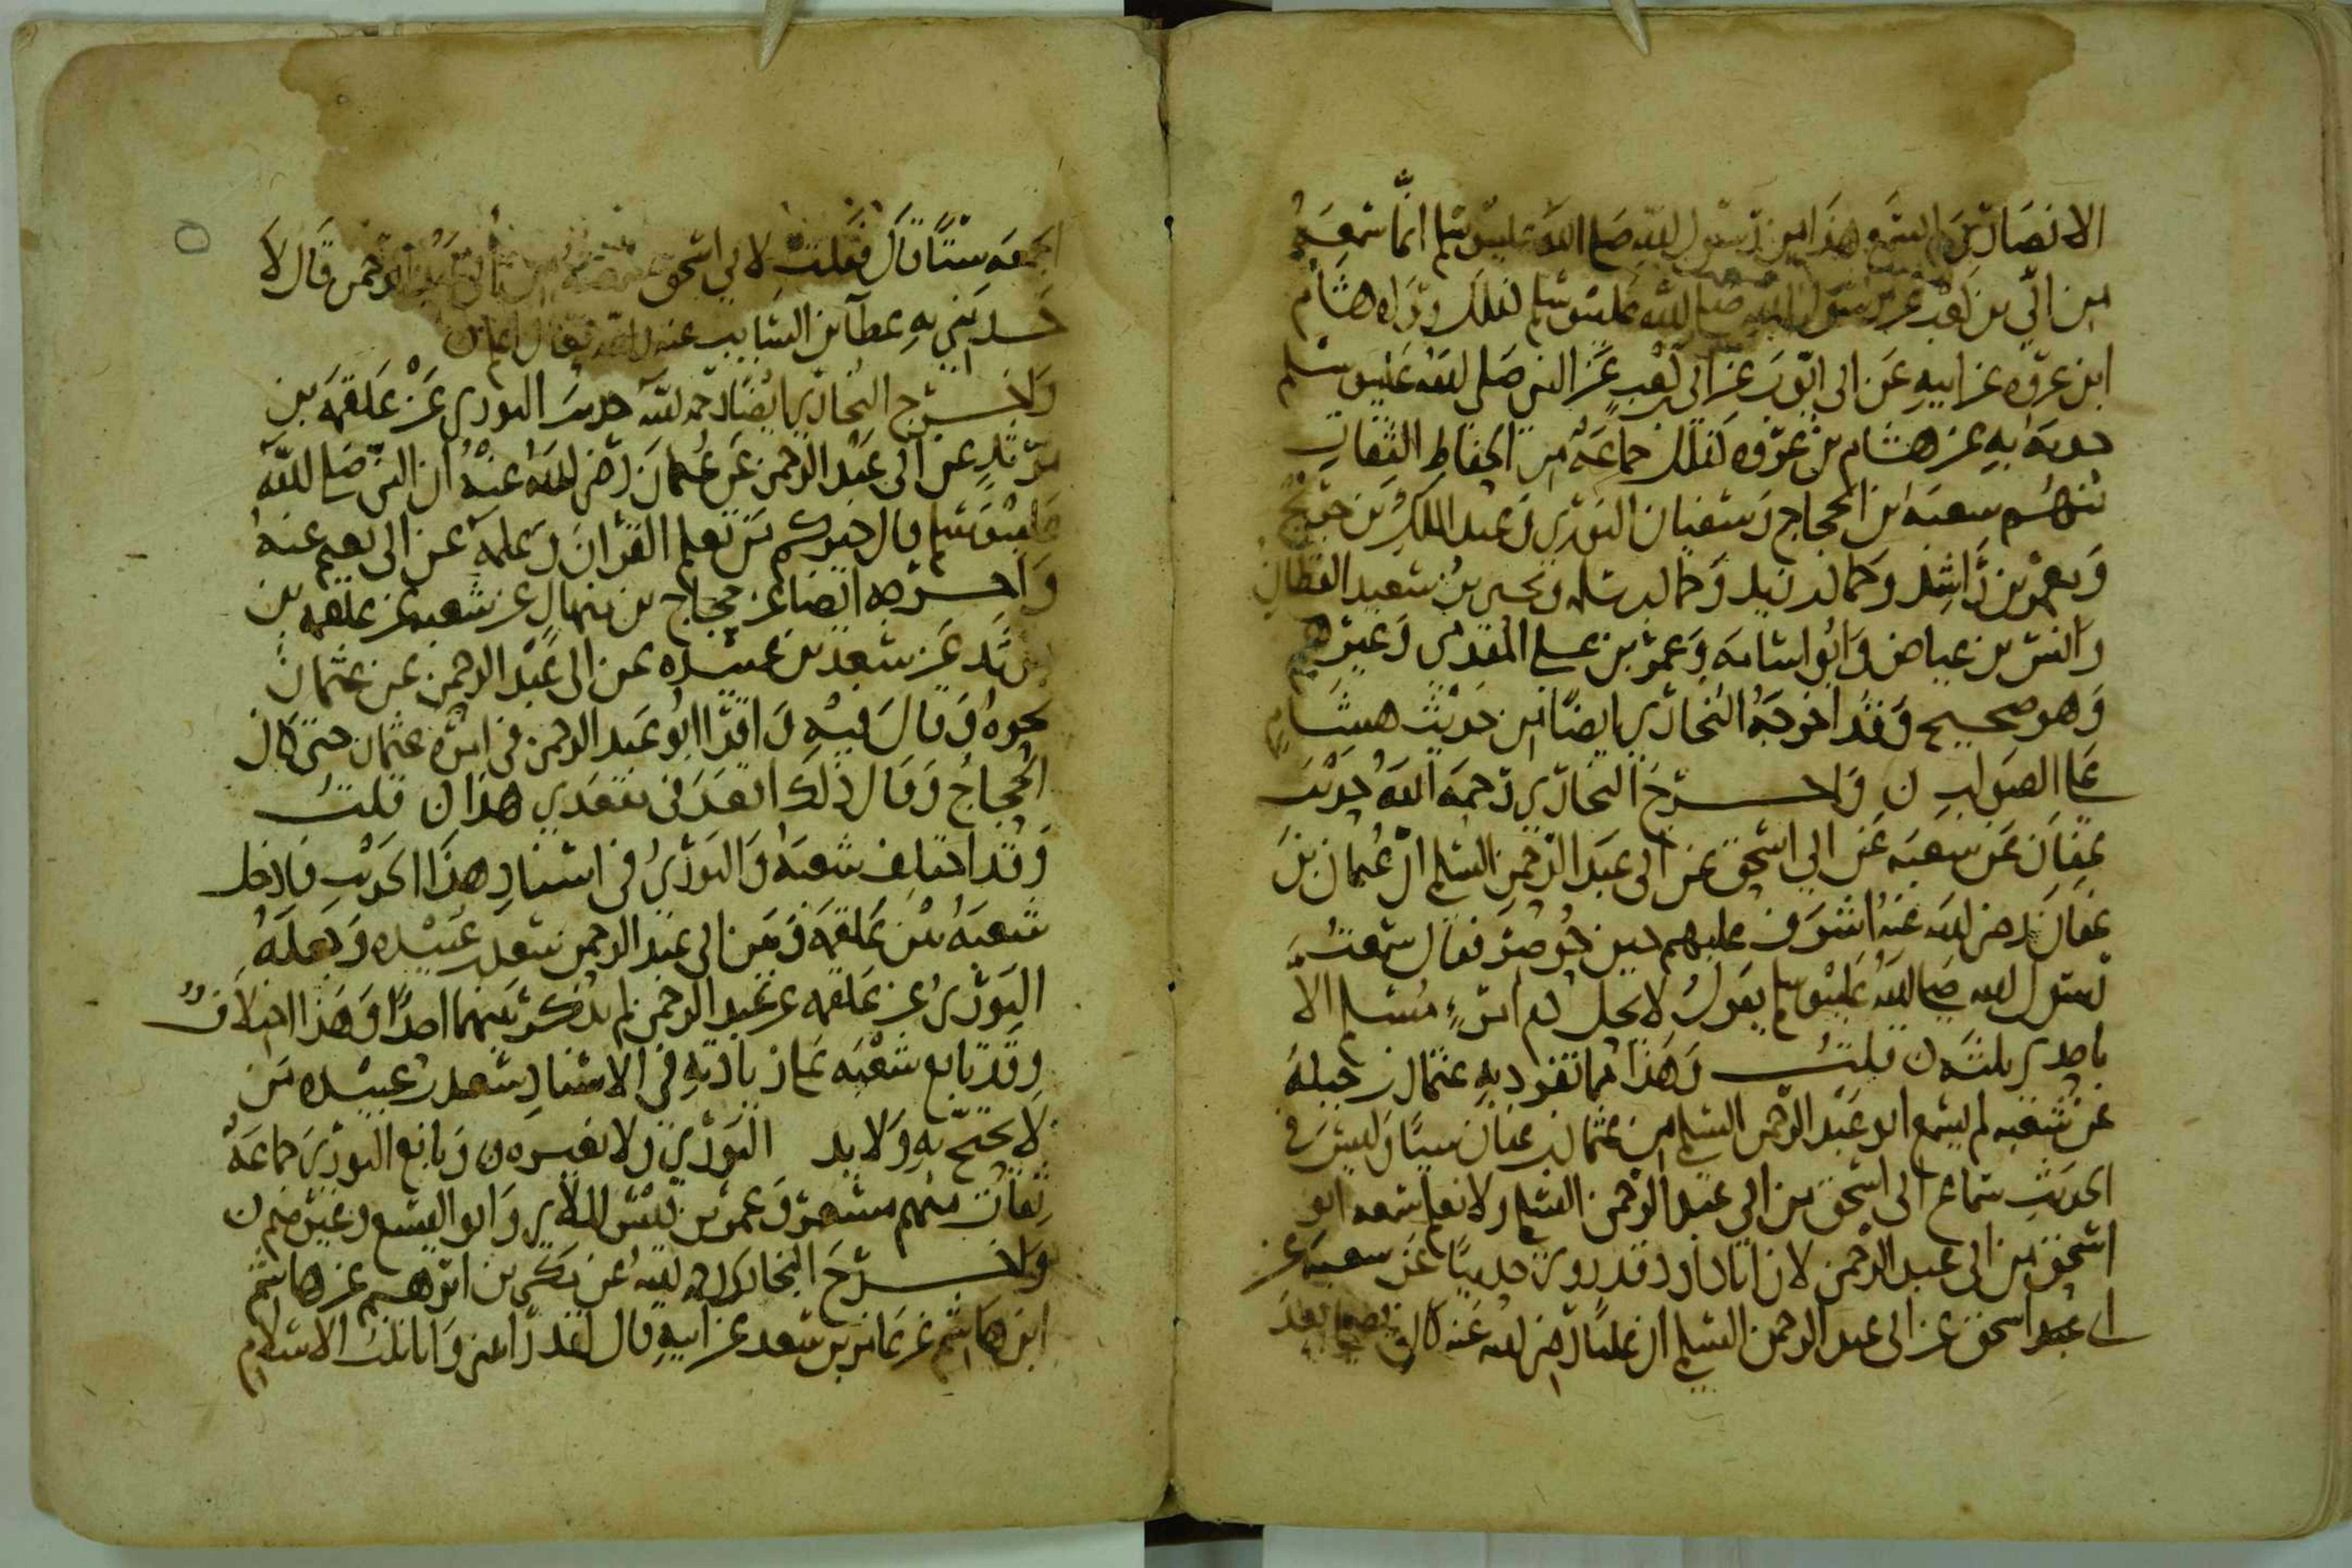 الانصاري لم يسمع هذا من رسول الله صلى الله عليه وسلم انما سمعه
من ابي بن كعب عن رسول الله صلى الله عليه وسلم كذلك رواه هشام
ابن عروه عن ابيه عن ابي ايوب عن ابي بن كعب عن النبي صلى الله عليه وسلم
حدث به عن هشام بن عروه كذلك جماعة من الحفاظ الثقات
منهم شعبة بن الحجاج وسفيان الثوري وعبد الملك بن جريج
ومعمر بن راشد وحماد بن زيد وحماد بن سلمه ويحيى بن سعيد القطان
وانس بن عياض وابو اسامه وعمر بن علي المقدمي وغيرهم
وهو صحيح وقد اخرجه البخاري ايضا من حديث هشام
على الصواب ن واخرج البخاري رحمه الله حديث
عفان عن شعبه عن ابي اسحق عن ابي عبد الرحمن السلمي ان عثمان بن
عفان رضي الله عنه اشرف عليهم حين حوصر فقال سمعت
رسول الله صلى الله عليه وسلم يقول لا يحل دم امرئ مسلم الا
باحدى ثلث ن قلت وهذا مما تفرد به عثمان بن جبله
عن شعبه لم يسمع ابو عبد الرحمن السلمي من عثمان بن عفان شيئا وليس في
الحديث سماع ابي اسحق من ابي عبد الرحمن السلمي ولا نعلم سمعه ابو
اسحق من ابي عبد الرحمن لان ابا داود قد روى حديثا عن شعبه عن
ابي اسحق عن ابي عبد الرحمن السلمي ان عليا رضي الله عنه كان يصلي بعد
الجمعه ستا قال فقلت لابي اسحق سمعته من ابي عبد الرحمن قال لا
حدثني به عطآ بن السايب عنه والله تعالى اعلم ن
واخرج البخاري ايضا رحمه الله حديث الثوري عن علقمه بن
مرثد عن ابي عبد الرحمن عن عثمان رضي الله عنه ان النبي صلى الله
عليه وسلم قال خيركم من تعلم القرآن وعلمه عن ابي نعيم عنه
واخرجه ايضا عن حجاج بن منهال عن شعبه عن علقمه بن
مرثد عن سعد بن عبيده عن ابي عبد الرحمن عن عثمان
نحوه وقال فيه واقرا ابو عبد الرحمن في امره عثمان حتى كان
الحجاج وقال ذلك اقعدني مقعدي هذا ن قلت
وقد اختلف شعبه والثوري في اسناد هذا الحديث فادخل
شعبه بين علقمه وبين ابي عبد الرحمن سعد بن عبيده وجعله
الثوري عن علقمه عن عبد الرحمن لم يذكر بينهما احدا وهذا اختلاف
وقد تابع شعبه على زيادته في الاسناد سعد بن عبيده من
لا يحتج به ولا يد الثوري ولا نفسه ن وتابع الثوري جماعة
ثقات منهم مسعر وعمرو بن قيس الملائي وابو اليسع وغيرهم ن
واخرج البخاري رحمه الله عن مكي بن ابرهيم عن هاشم
ابن هاشم عن عامر بن سعد عن ابيه قال لقد رايتني وانا ثلث الاسلام